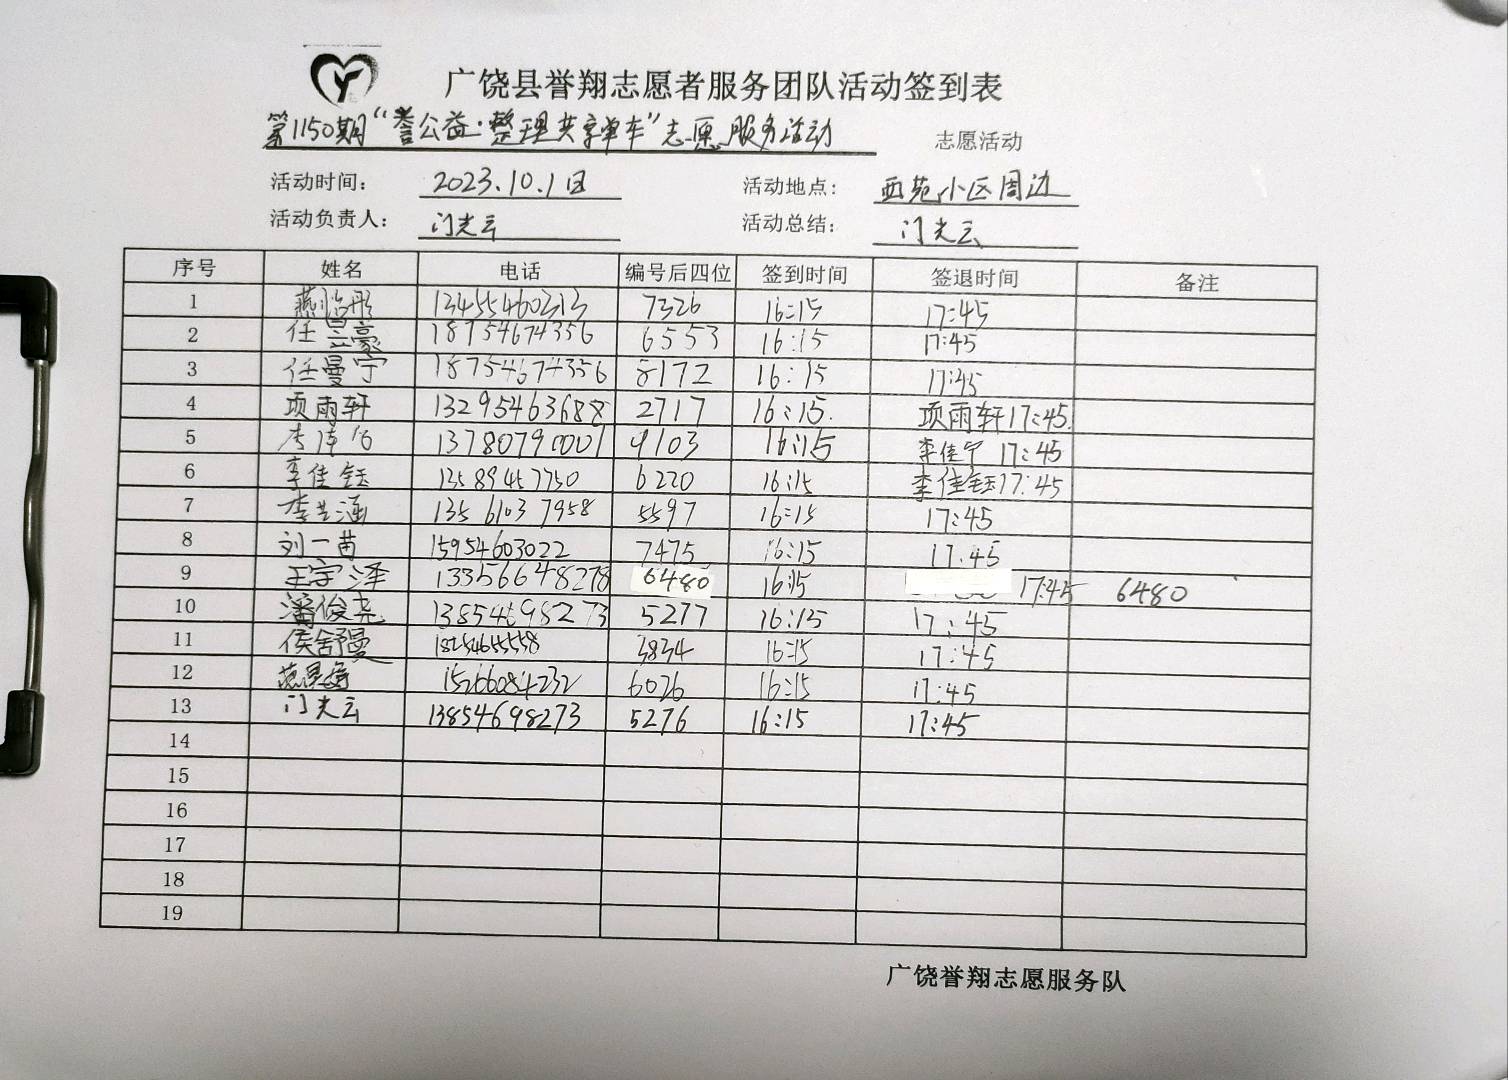 广饶县誉翔志愿者服务团队活动签到表
第1150期“誉公益·整理共享单车”志愿服务活动 志愿活动
活动时间： 2023.10.1日 活动地点： 西苑小区周边
活动负责人： 门光云 活动总结： 门光云
序号 姓名 电话 编号后四位 签到时间 签退时间 备注
1 燕怡彤 13455460313 7326 16:15 17:45
2 任昱豪 18754674356 6553 16:15 17:45
3 任曼宁 18754674356 8172 16:15 17:45
4 项雨轩 13295463688 2717 16:15. 项雨轩17:45.
5 13780790001 9103 16:15 李佳 17:45
6 李佳钰 13589457750 6220 16:15 李佳钰17:45
7 李芸涵 13561037958 5597 16:15 17:45
8 刘一苗 15954603022 7475 16:15 17.45
9 王宇泽 13356648278 6480 16:15 17:45 6480
10 潘俊尧 13854698273 5277 16:15 17:45
11 侯舒曼 18254655558 3834 16:15 17:45
12 15266084232 6026 16:15 17:45
13 门光云 13854698273 5276 16:15 17:45
14
15
16
17
18
19
广饶誉翔志愿服务队